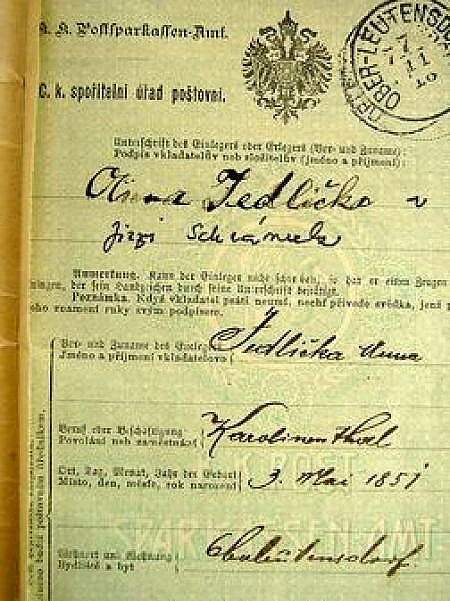 k. k. Postsparkassen-Amt.
C. k. spořitelní úřad poštovní.
OBER-LEUTENSDORF
7
11
Unterschrift des Einlegers oder Erlegers (Vor- und Zuname):
Podpis vkladatelův neb složitelův (jméno a příjmení):
Jedlička
Anmerkung. Kann der Einleger nicht schreiben, so hat er einen Zeugen
der sein Handzeichen durch seine Unterschrift bestätigt.
Poznámka. Když vkladatel psáti neumí, nechť přivede svědka, jenž
jeho znamení ruky svým podpisem.
Vor- und Zuname des Einlegers
Jméno a příjmení vkladatelovo
Jedlička Anna
Beruf oder Beschäftigung
Povolání neb zaměstnání
Karolinenthal
Ort, Tag, Monat, Jahr der Geburt
Místo, den, měsíc, rok narození
3. Mai 1851
Wohnort und Wohnung
Bydliště a byt
Oberleutensdorf.
SPARKASSEN AMT.